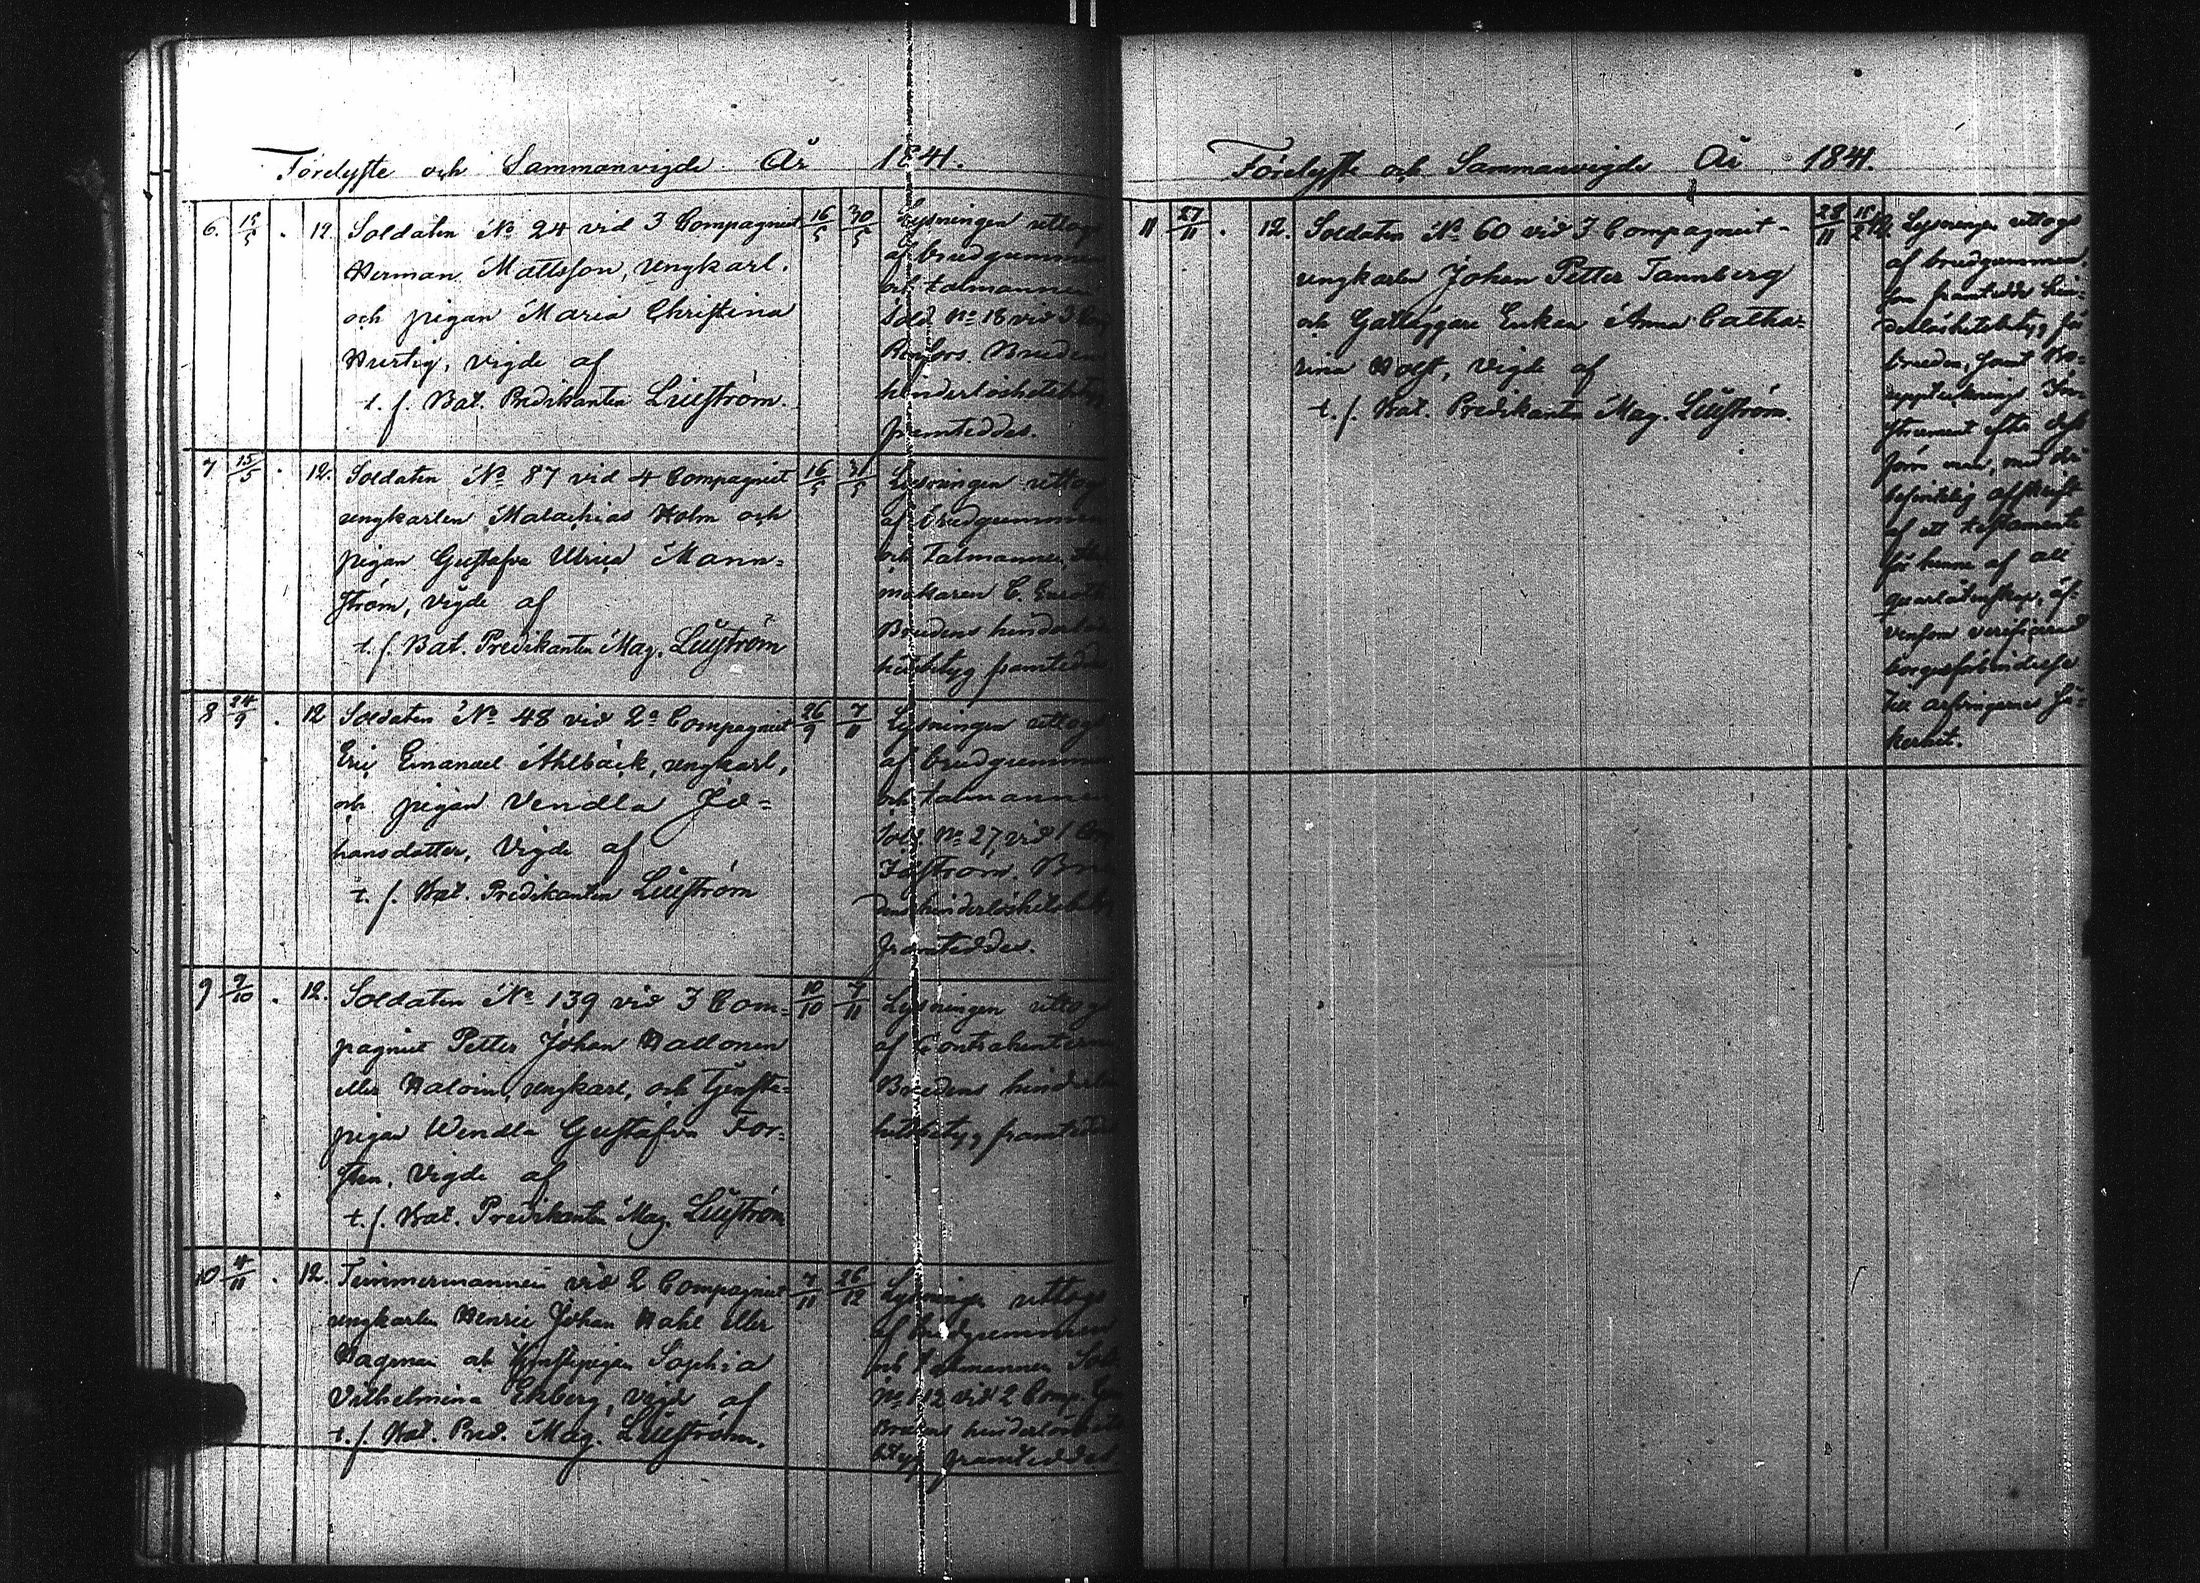 Förelyste och Sammanvigde År 1841.
6. 15/5 . 12 Soldaten No 24 vid 3 Compagniet 16/5 30/5
Herman Mattsson, ungkarl,
och pigan Maria Christina
Hurtig, vigde af
t. f. Bat. Predikanten Liljeström.
Lysningen uttogs
af brudgummen
och talmannen
Sold. No 18 vid 3
Renfors. Brudens
hinderlöshetsbetyg
framteddes.
7 15/5 . 12. Soldaten No 87 vid 4 Compagniet 16/5 31/5
ungkarlen Malachias Holm och
pigan Gustafva Ulrica Mann=
ström, vigde af
t. f. Bat. Predikanten Mag. Liljeström
Lysningen uttogs
af brudgummen
och talmannen,
makaren C.
Brudens hinderlös
hetsbetyg framteddes
8 24/9 . 12 Soldaten No 48 vid 2a Compagniet 26/9 7/11
Eric Emanuel Ahlbäck, ungkarl,
och pigan Vendla Jo=
hansdotter, Vigde af
t. f. Bat. Predikanten Liljeström
Lysningen uttogs
af brudgummen
och talmannen
Sold No 27, vid 1 Comp
Bru
dens hinderlöshetsbetyg
framteddes.
9 9/10 . 12. Soldaten No 139 vid 3 Com= 10/10 7/11
pagniet Petter Johan Hallonen
eller Haloin, ungkarl, och tjenste=
pigan Wendla Gustafva For=
sten, Vigde af
t. f. Bat. Predikanten Mag. Liljeström
Lysningen uttogs
af Contrahenterne
Brudens hinderlös
hetsbetyg framteddes
10 4/11 . 12. Timmermannen vid 2 Compagniet 7/11 26/12
ungkarlen Henric Johan Hahl eller
Hagman och tjenstepigan Sophia
Vilhelmina Ekberg, vigde af
t. f. Bat. Pred. Mag. Liljeström.
Lysningen uttogs
af brudgummen
och talmannen Sold
No 112 vid 2 Comp.
Brudens hinderlöshets
betyg framteddes
Förelyste och Sammanvigde År 1841.
11 27/11 . 12. Soldaten No 60 vid 3 Compagniet 28/11
ungkarlen Johan Petter Tannberg
och Gatläggare Enkan Anna Catha=
rina Holst, Vigde af
t. f. Bat. Predikanten Mag. Liljeström.
Lysningen uttogs
af brudgummen,
som framtedde hin=
derlöshetsbetyg för
bruden, samt Bo=
uppteckning In=
strument efter dess
förre man, med der
befintlig afskrift
af ett testamente
för henne af all
qvarlåtenskap, äf=
vensom verificerad
borgesförbindelse
till arfvingarnes sä=
kerhet.